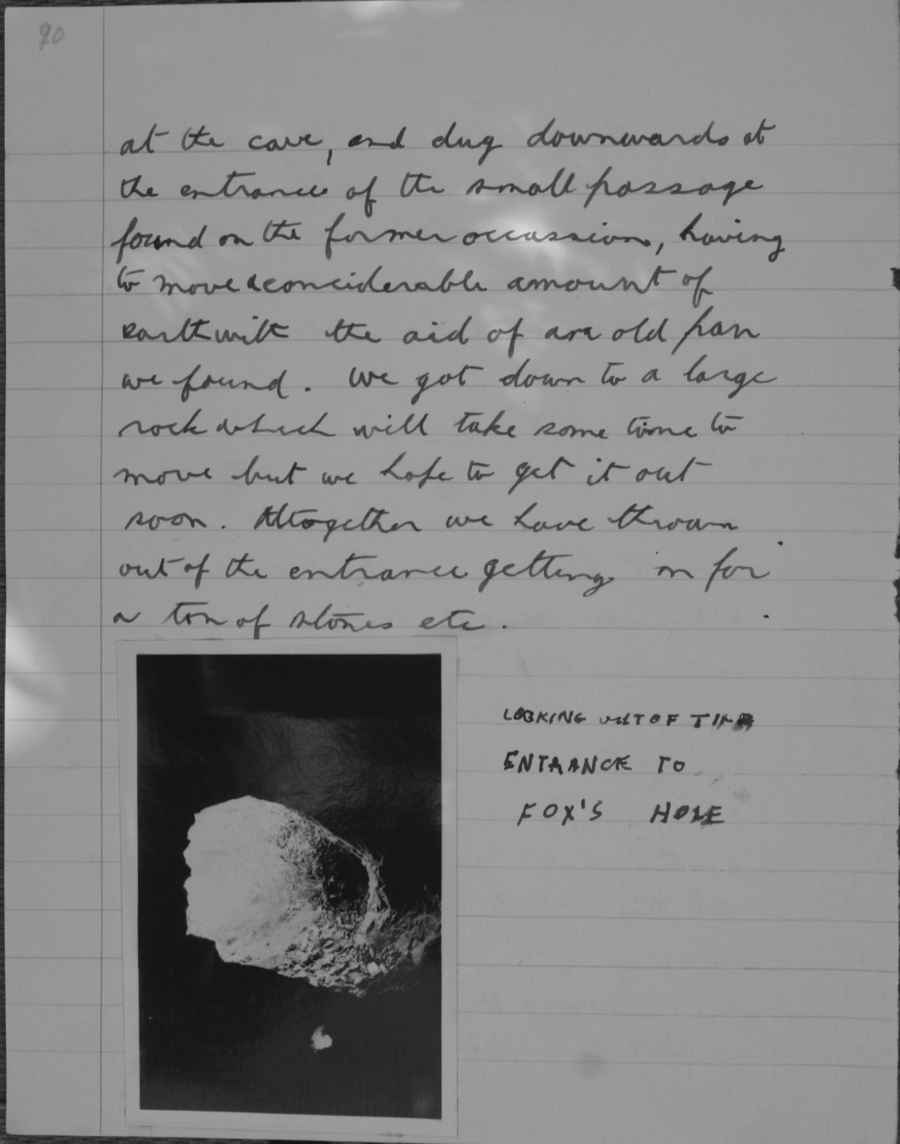 90
at the cave, and dug downwards at
the entrance of the small passage
found on the former occassion, having
to move a conciderable amount of
earth with the aid of an old pan
we found. We got down to a large
rock which will take some time to
move but we hope to get it out
soon. Altogether we have thrown
out of the entrance getting on for
a ton of stones etc.
LOOKING OUT OF THE
ENTRANCE TO
FOX'S HOLE